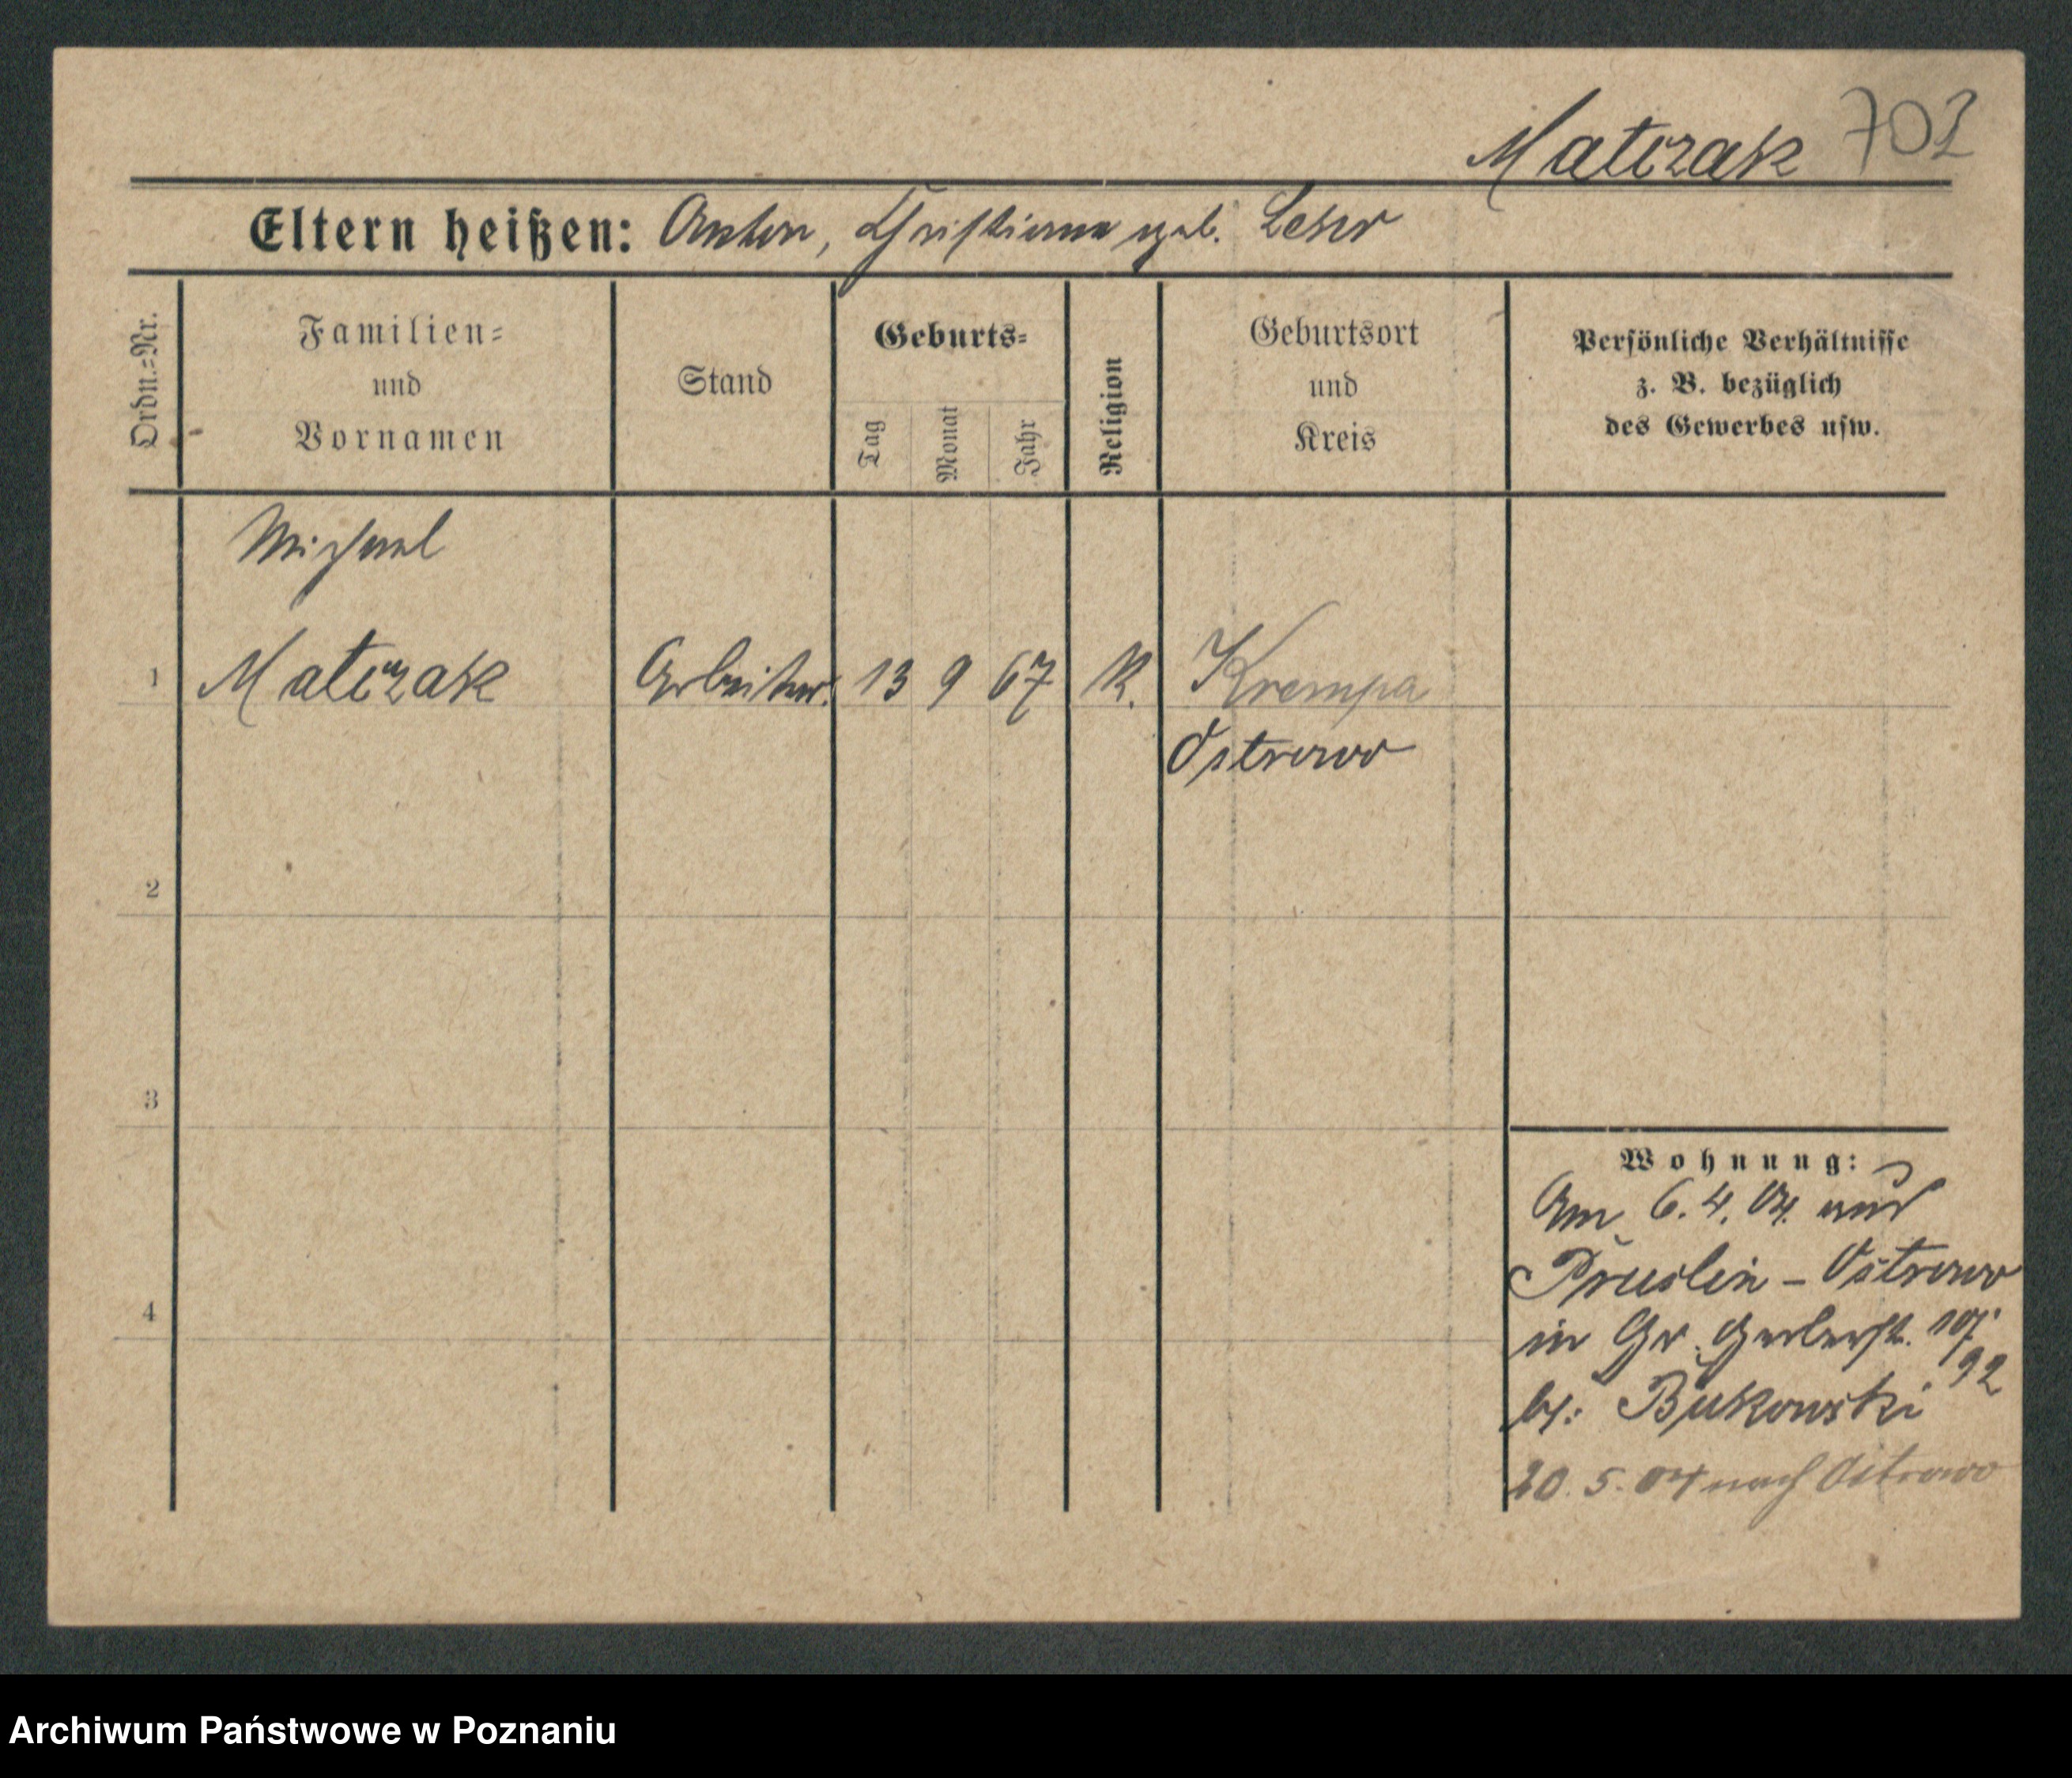 Matczak 701
Eltern heißen: Anton, Christiana geb. Lehr
Ordn.=Nr.
Familien=
und
Vornamen
Stand
Geburts=
Tag
Monat
Jahr
Religion
Geburtsort
und
Kreis
Persönliche Verhältnisse
z. B. bezüglich
des Gewerbes usw.
Michael
1 Matczak Arbeiter. 13 9 67 K. Krempa
Ostrowo
2
3
4
Wohnung:
Am 6.4.04. aus
Pruslin – Ostrowo
in Gr. Gerberst.
92
bei: Bukowski
20.5.04 nach Ostrowo
Archiwum Państwowe w Poznaniu